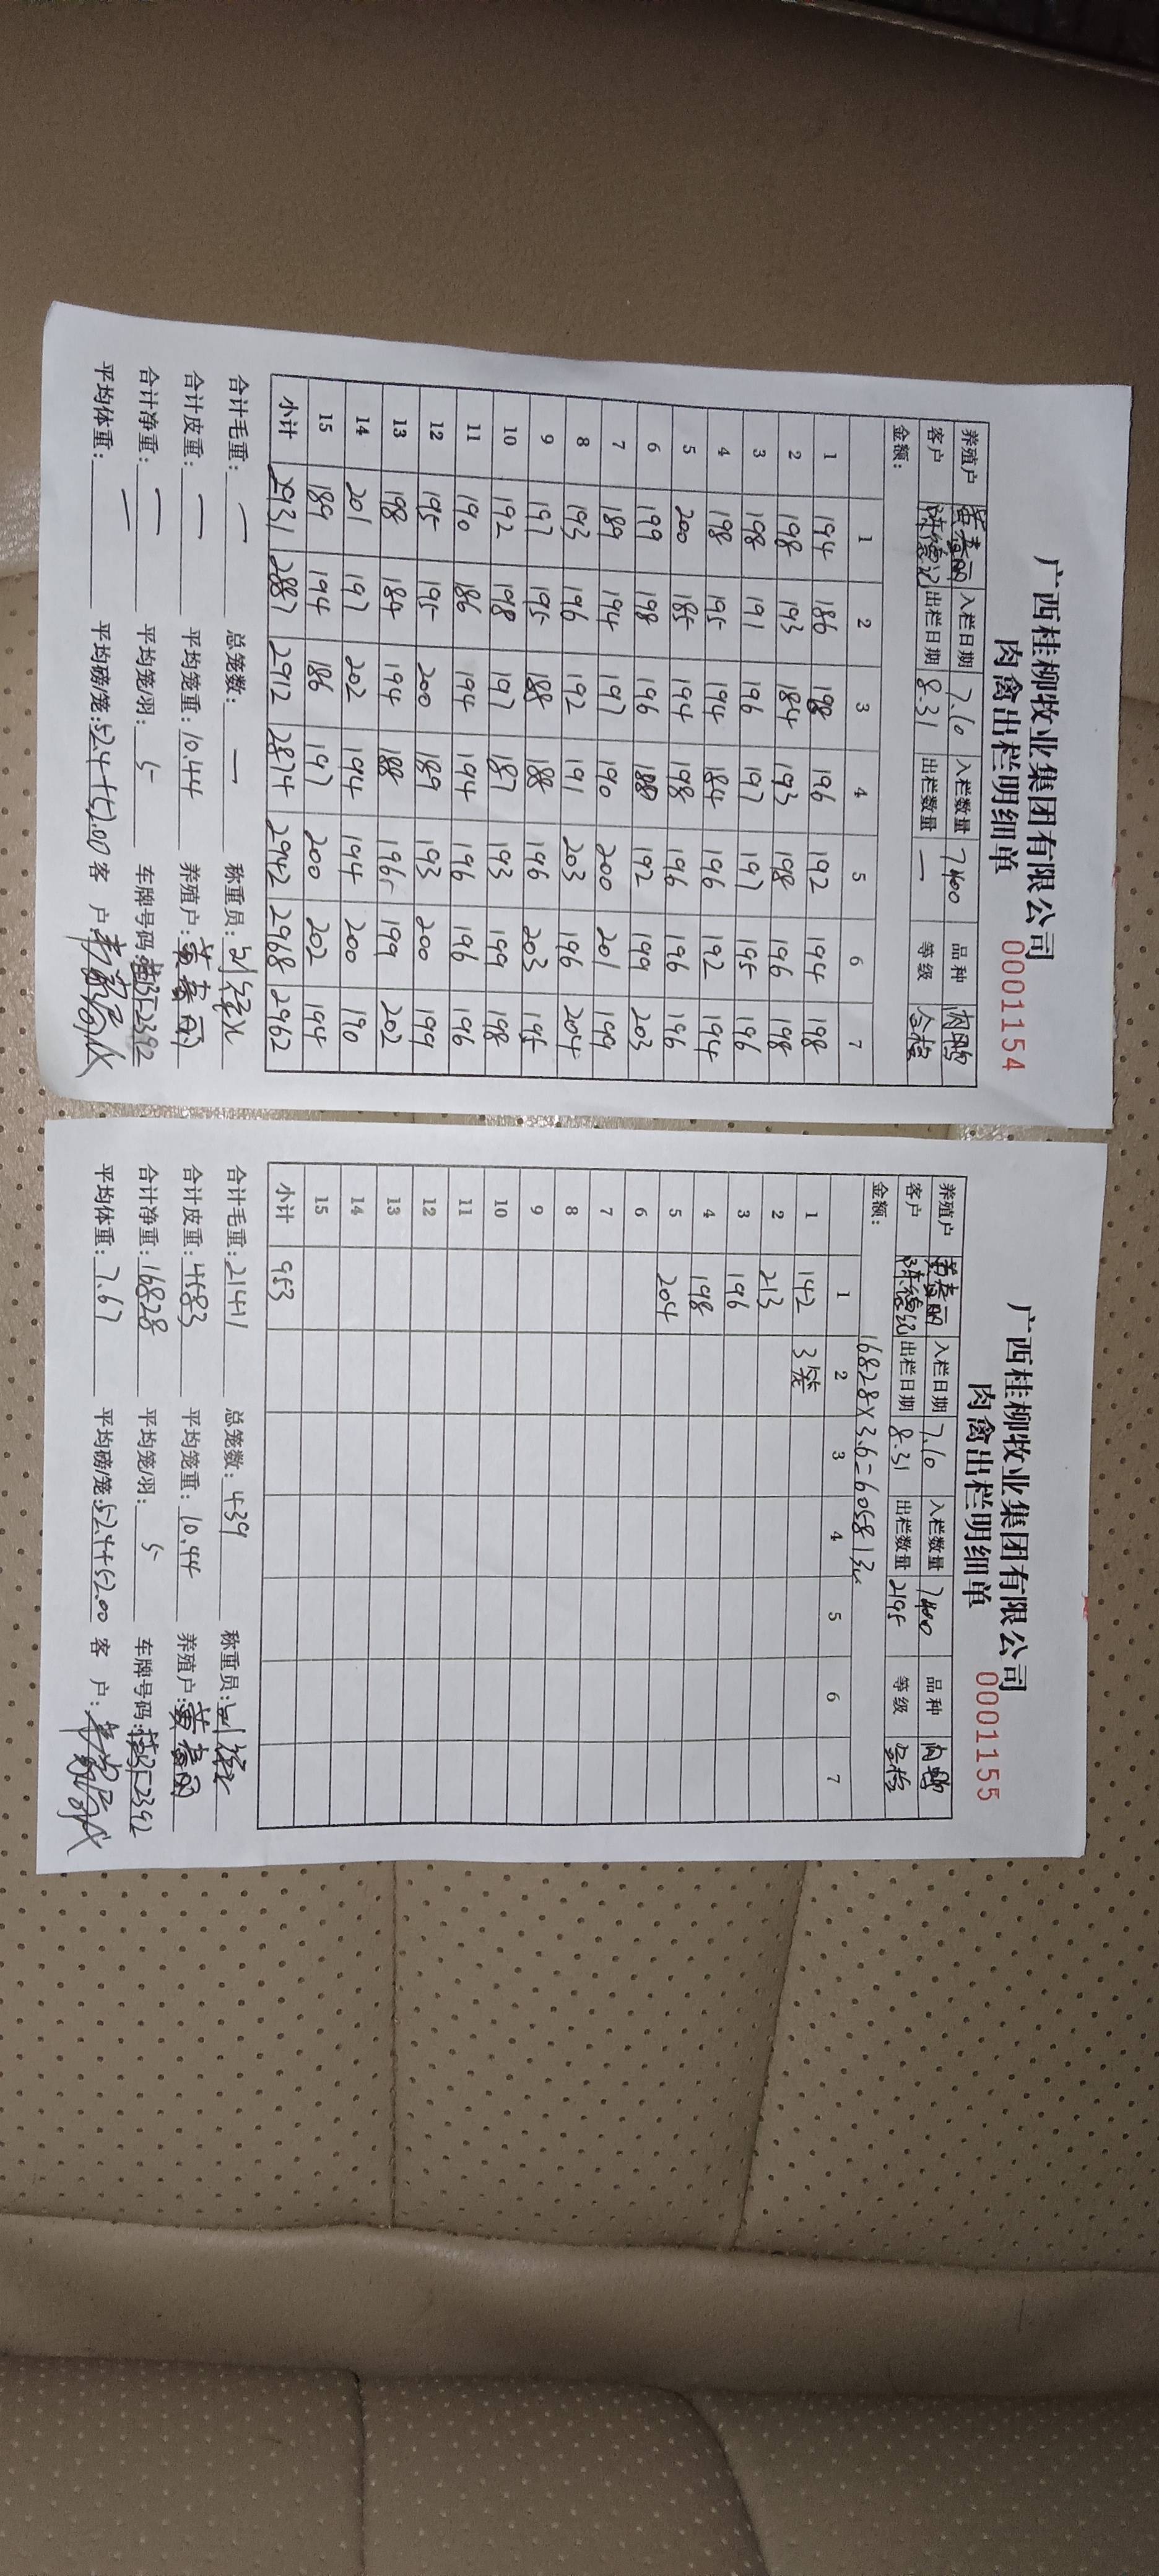 广西桂柳牧业集团有限公司
肉禽出栏明细单 0001154
养殖户 黄春丽 入栏日期 7.10 入栏数量 7400 品种 肉鸭
客户 陈德记 出栏日期 8.31 出栏数量 — 等级 合格
金额：
1 2 3 4 5 6 7
1 194 186 198 196 192 194 198
2 198 193 184 193 198 196 198
3 198 191 196 197 197 195 196
4 198 195 194 184 196 192 194
5 200 185 194 198 196 196 196
6 199 198 196 188 192 199 203
7 189 194 197 190 200 201 199
8 193 196 192 191 203 196 204
9 197 195 188 188 196 203 195
10 192 198 197 187 193 199 198
11 190 186 194 194 196 196 196
12 195 195 200 189 193 200 199
13 198 184 194 188 196 199 202
14 201 197 202 194 194 200 190
15 189 194 186 197 200 202 194
小计 2931 2887 2912 2874 2942 2968 2962
合计毛重：— 总笼数：— 称重员：
合计皮重：— 平均笼重：10.444 养殖户：黄春丽
合计净重：— 平均笼/羽：5 车牌号码：
平均体重：— 平均磅/笼：52.4+52.00 客 户：
广西桂柳牧业集团有限公司
肉禽出栏明细单 0001155
养殖户 黄春丽 入栏日期 7.10 入栏数量 7400 品种 肉鸭
客户 陈德记 出栏日期 8.31 出栏数量 2195 等级 合格
金额： 16828×3.6=60581元
1 2 3 4 5 6 7
1 142 3笼
2 213
3 196
4 198
5 204
6
7
8
9
10
11
12
13
14
15
小计 953
合计毛重：21411 总笼数：439 称重员：
合计皮重：4583 平均笼重：10.44 养殖户：黄春丽
合计净重：16828 平均笼/羽：5 车牌号码：
平均体重：7.67 平均磅/笼：52.4+52.00 客 户：